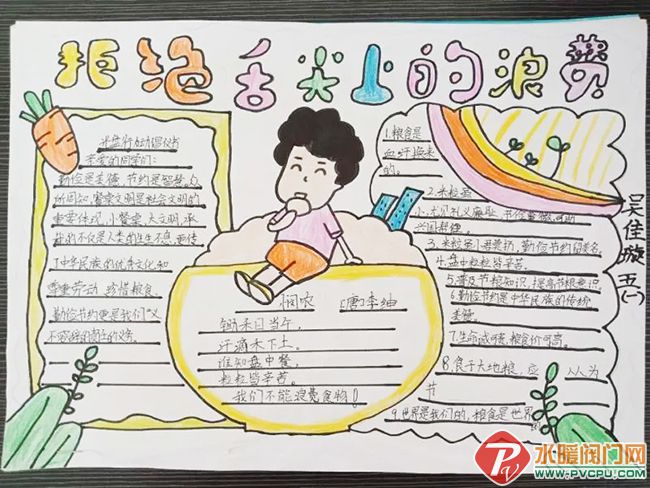 拒绝舌尖上的浪费
光盘行动倡议书
亲爱的同学们:
勤俭是美德,节约是智慧。众
所周知,餐桌文明是社会文明的
重要体现,小餐桌,大文明,承
载的不仅是人类的生生不息,更传
了中华民族的优秀文化。如
尊重劳动,珍惜粮食,
勤俭节约更是我们义
不容辞的责任的义务。
悯农 (唐)李绅
锄禾日当午,
汗滴禾下土。
谁知盘中餐,
粒粒皆辛苦。
我们不能浪费食物!
1.粮食是
血汗换来
的。
2.米粒虽
小
兴国帮健。
3.米粒虽小君莫扔,勤俭节约留美名。
4.盘中粒粒皆辛苦。
5.普及节粮知识,提高节粮意识。
6.勤俭节约是中华民族的传统
美德。
7.生命诚可贵,粮食价可高。
8.食于大地粮,应 从人为
节
9.世界是我们的,粮食是世界
吴佳璇 五(一)
水暖阀门网
WWW.PVCPU.COM